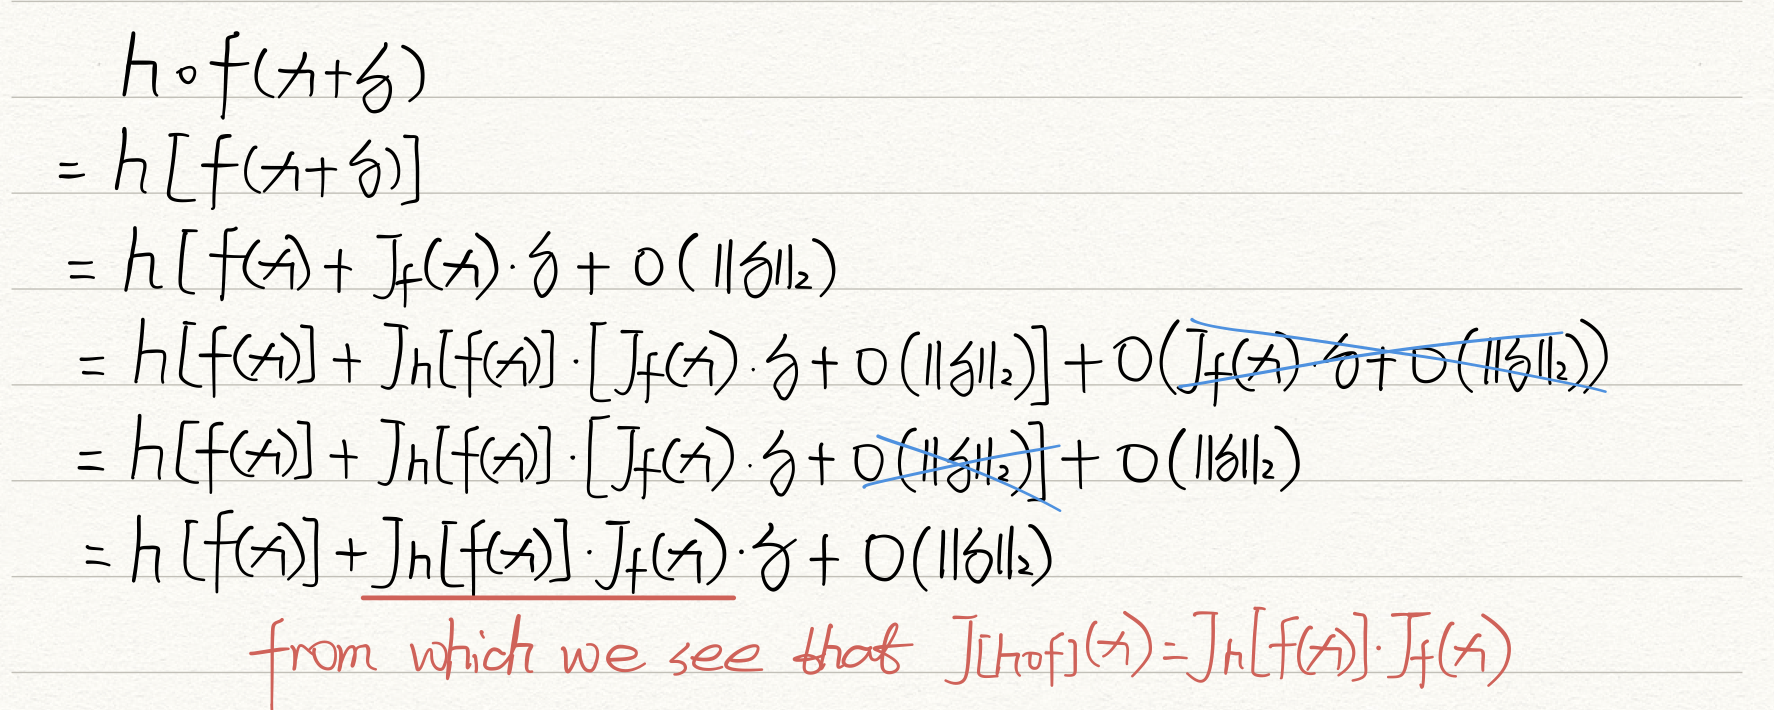 h∘f(x+δ)
= h[f(x+δ)]
= h[f(x) + J_f(x)·δ + o(||δ||₂)
= h[f(x)] + J_h[f(x)]·[J_f(x)·δ + o(||δ||₂)] + o(J_f(x)·δ + o(||δ||₂))
= h[f(x)] + J_h[f(x)]·[J_f(x)·δ + o(||δ||₂)] + o(||δ||₂)
= h[f(x)] + J_h[f(x)]·J_f(x)·δ + o(||δ||₂)
from which we see that J_[h∘f](x) = J_h[f(x)]·J_f(x)